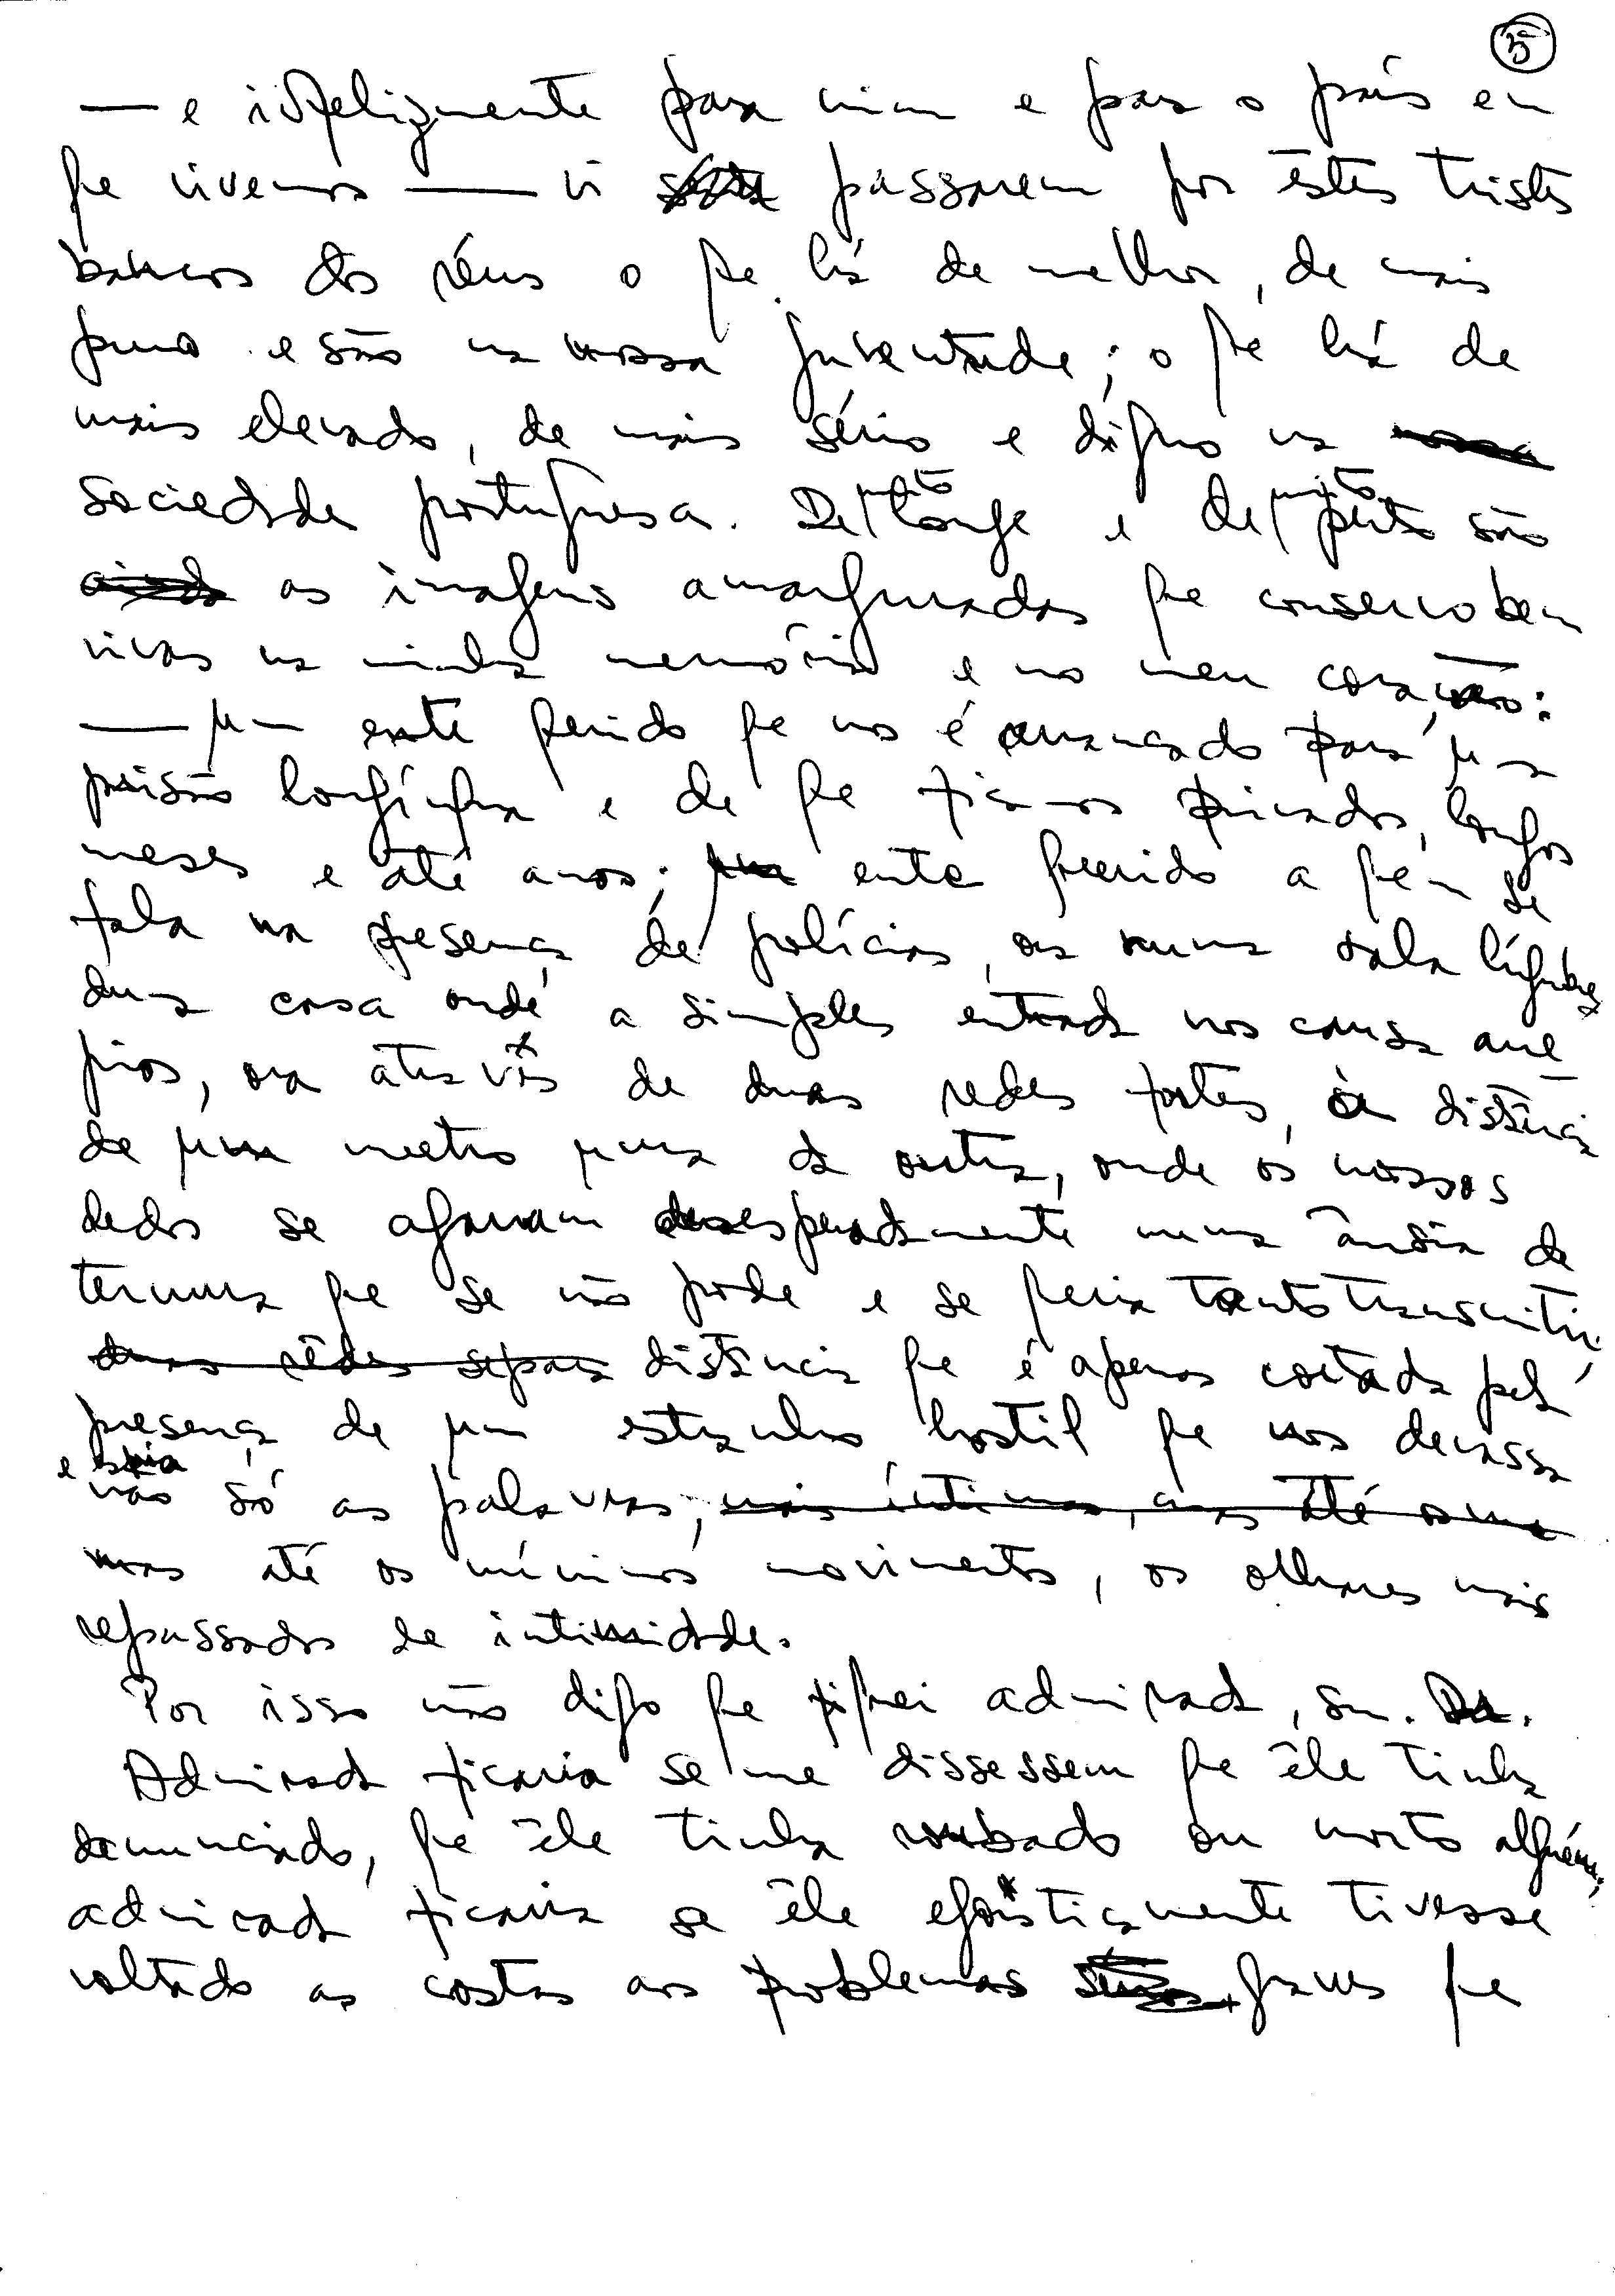 5
— e infelizmente para mim e para o país em
que vivemos — vi passarem por êstes tristes
bancos dos réus o que há de melhor, de mais
puro e são na nossa juventude; o que há de
mais elevado, de mais sério e digno na
sociedade portuguesa. De muito longe e de muito perto são
ainda as imagens amarguradas que conservo bem
vivas na minha memória e no meu coração:
— um ente querido que nos é arrancado para uma
prisão longínqua e de que ficamos privados, longos
meses e até anos; um ente querido a quem se
fala na presença de polícias, ora numa sala lúgubre
duma casa onde a simples entrada nos causa arre-
pios, ora através de duas redes fortes, à distância
de um metro uma da outra, onde os nossos
dedos se agarram desesperadamente numa ânsia de
ternura que se não pode e se queria tanto transmitir,
duas rêdes separa distância que é apenas cortada pela
presença de um estranho hostil que nos devassa
e
não só as palavras, mais íntimas, mas até os
mas até os mínimos movimentos, os olhares mais
repassados de intimidade.
Por isso não digo que fiquei admirada, sr. Dr.
Admirada ficaria se me dissessem que êle tinha
denunciado, que êle tinha roubado ou morto alguém;
admirada ficaria se êle egoìsticamente tivesse
voltado as costas aos problemas sérios graves que